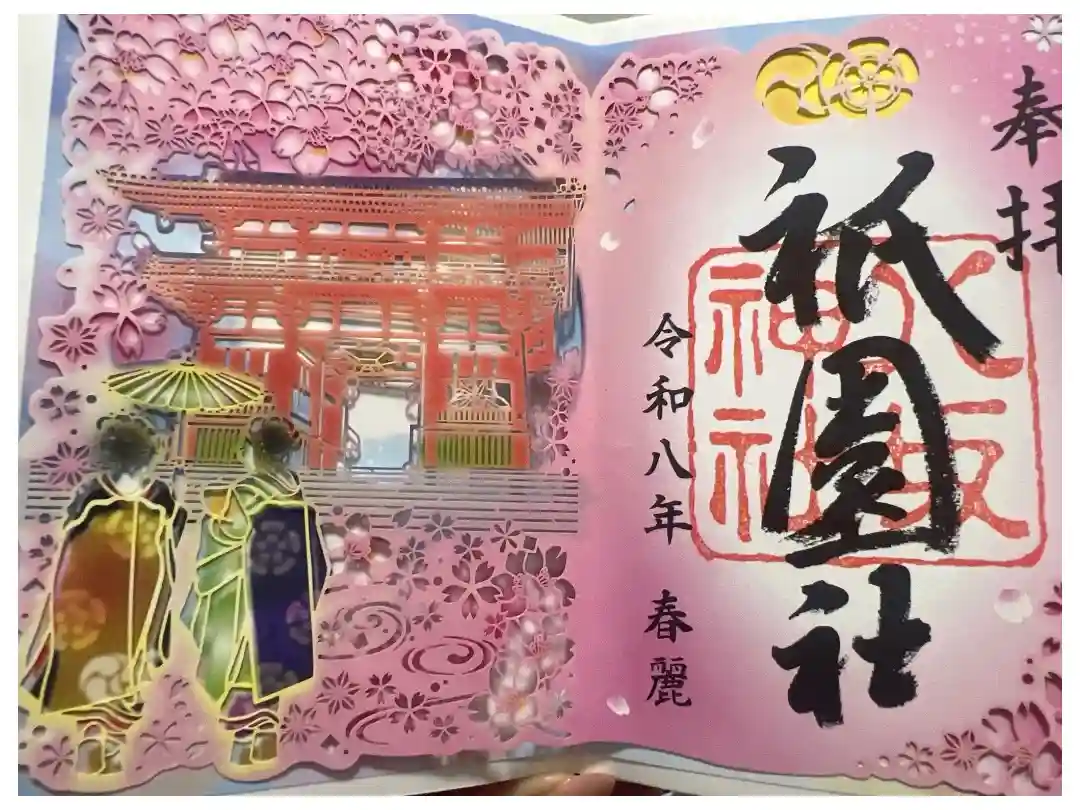 奉拝
祇園社
八坂
神社
令和八年 春麗